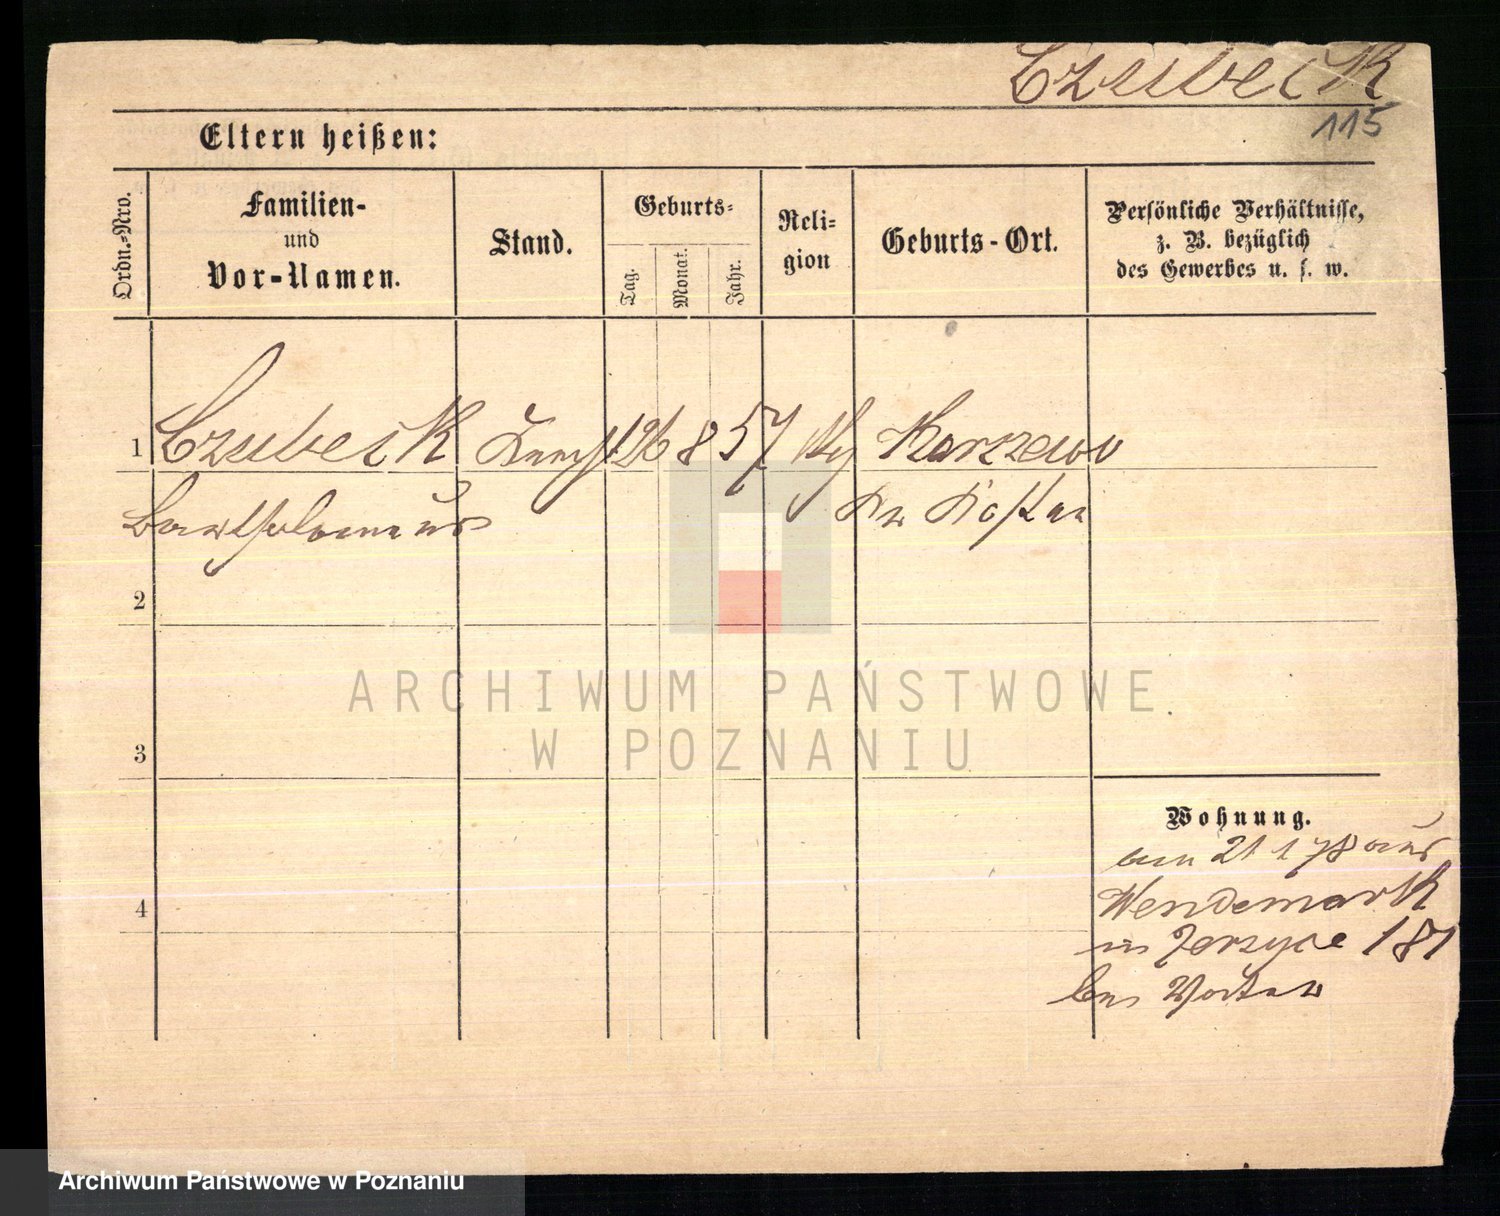 Czubeck
115
Eltern heißen:
Ordn.-Nro.
Familien-
und
Vor-Namen.
Stand.
Geburts-
Tag.
Monat.
Jahr.
Reli-
gion
Geburts-Ort.
Persönliche Verhältnisse,
z. B. bezüglich
des Gewerbes u. s. w.
1 Czubeck Knecht 26 8 57 Karzewo
Bartholomeus Kr Kosten
2
3
4
Wohnung.
am 21 1 78 aus
Wendemark
in Jerzyce 181
bei
ARCHIWUM PAŃSTWOWE
W POZNANIU
Archiwum Państwowe w Poznaniu